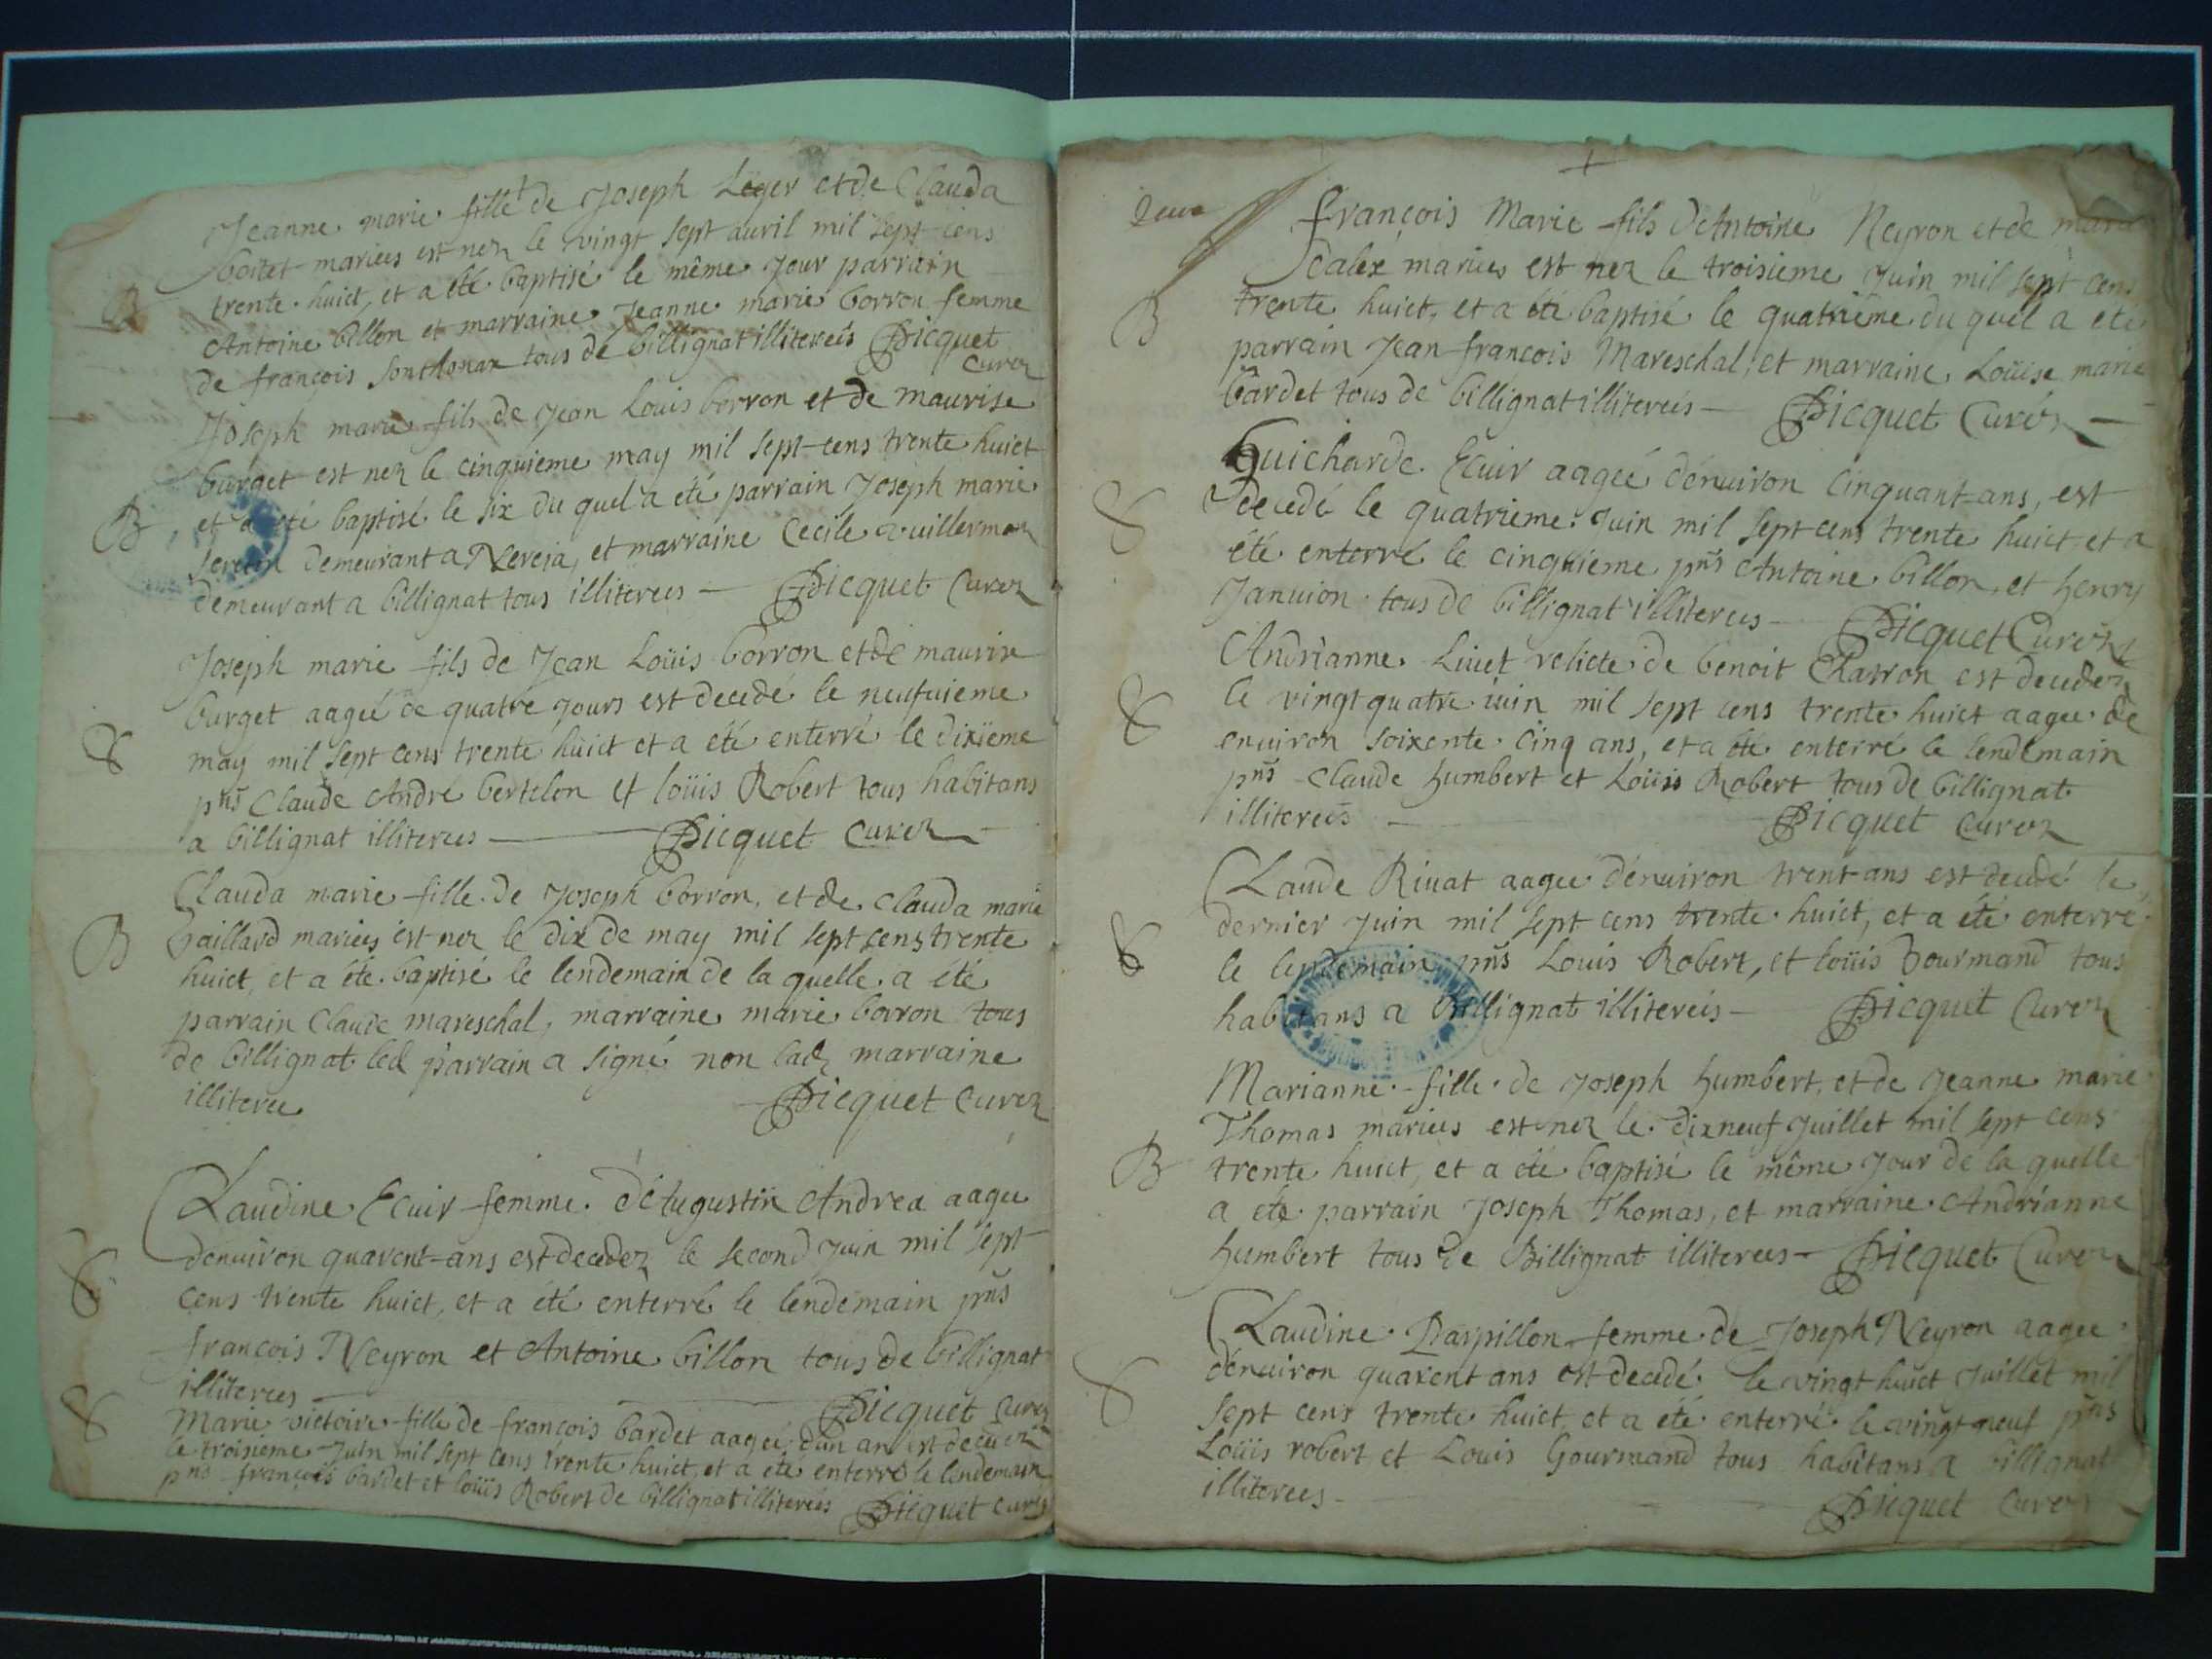 Jeanne marie fille de Joseph Leger et de Clauda
boitet mariees est nez le vingt sept auril mil sept cens
B
trente huict, et a été baptisé le même jour parrain
Antoine billon et marraine Jeanne marie borron femme
de françois sonthonax tous de billignat illitereés Picquet
Curez
Joseph marie fils de Jean Louis borron et de maurise
burget est nez le cinquieme may mil sept-cens trente huict
B
et a été baptisé le six du quel a été parrain Joseph marie
demeurant a Nereja, et marraine Cecile vuillermoz
demeurant a billignat tous illiterees — Picquet Curez
Joseph marie fils de Jean Loüis borron et de maurise
burget aageé de quatre jours est decedé le neufuieme
S
may mil sept cens trente huict et a été enterré le dixieme
pñs Claude André bertelon et loüis Robert tous habitans
a billignat illiterees — Picquet Curez
Clauda marie fille de Joseph borron, et de Clauda marie
B
Gaillard mariees est nez le dix de may mil sept cens trente
huict, et a été baptisé le lendemain de la quelle a été
parrain Claude mareschal, marraine marie borron tous
de billignat led parrain a signé non lad marraine
illiteree Picquet Curez
Claudine Ecuir femme d'Augustin Andrea aagee
denuiron quarent-ans est decedez le second Juin mil sept
S
cens trente huict, et a été enterré le lendemain pñs
françois Neyron et Antoine billon tous de billignat
illiterees — Picquet Curez
S
Marie victoire fille de françois bardet aageé d'un an est decedez
le troisieme Juin mil sept cens trente huict, et a été enterré le lendemain
pñs françois bardet et loüis Robert de billignat illitereés Picquet Curez
2eme
françois Marie fils d'Antoine Neyron et de
mariees est nez le troisieme Juin mil sept cens
B
trente huict, et a été baptisé le quatrieme du quel a été
parrain Jean françois Mareschal, et marraine Loüise marie
bardet tous de billignat illitereés — Picquet Curéz —
Guicharde Ecuir aageé dénuiron Cinquant-ans, est
S
decedé le quatrieme Juin mil sept cens trente huict, et a
été enterré le cinquieme pñs Antoine billon, et henry
Januion tous de billignat illiterees — Picquet Curéz
Andrianne Liuet relicte de benoit Charron est decedez
S
le vingt quatre iuin mil sept cens trente huict aagee de
enuiron soixente cinq ans, et a été enterré le lendemain
pñs Claude humbert et Loüis Robert tous de billignat
illitereés — Picquet Curez
Claude Riuat aagee dénuiron trent-ans est decedé le
S
dernier Juin mil sept cens trente huict, et a été enterré
le lendemain pñs Louis Robert, et loüis Gourmand tous
habitans a billignat illitereés — Picquet Curez
Marianne fille de Joseph humbert, et de Jeanne marie
Thomas mariees est nez le dixneuf Juillet mil sept cens
B
trente huict, et a été baptisé le même jour de la quelle
a été parrain Joseph Thomas, et marraine Andrianne
humbert tous de Billignat illiterees — Picquet Curez
Claudine Parpillon femme de Joseph Neyron aagee
S
dénuiron quarent ans est decedé le vingt huict Juillet mil
sept cens trente huict, et a été enterré le vingt neuf pñs
Loüis robert et Louis Gourmand tous habitans a billignat
illiterees — Picquet Curez